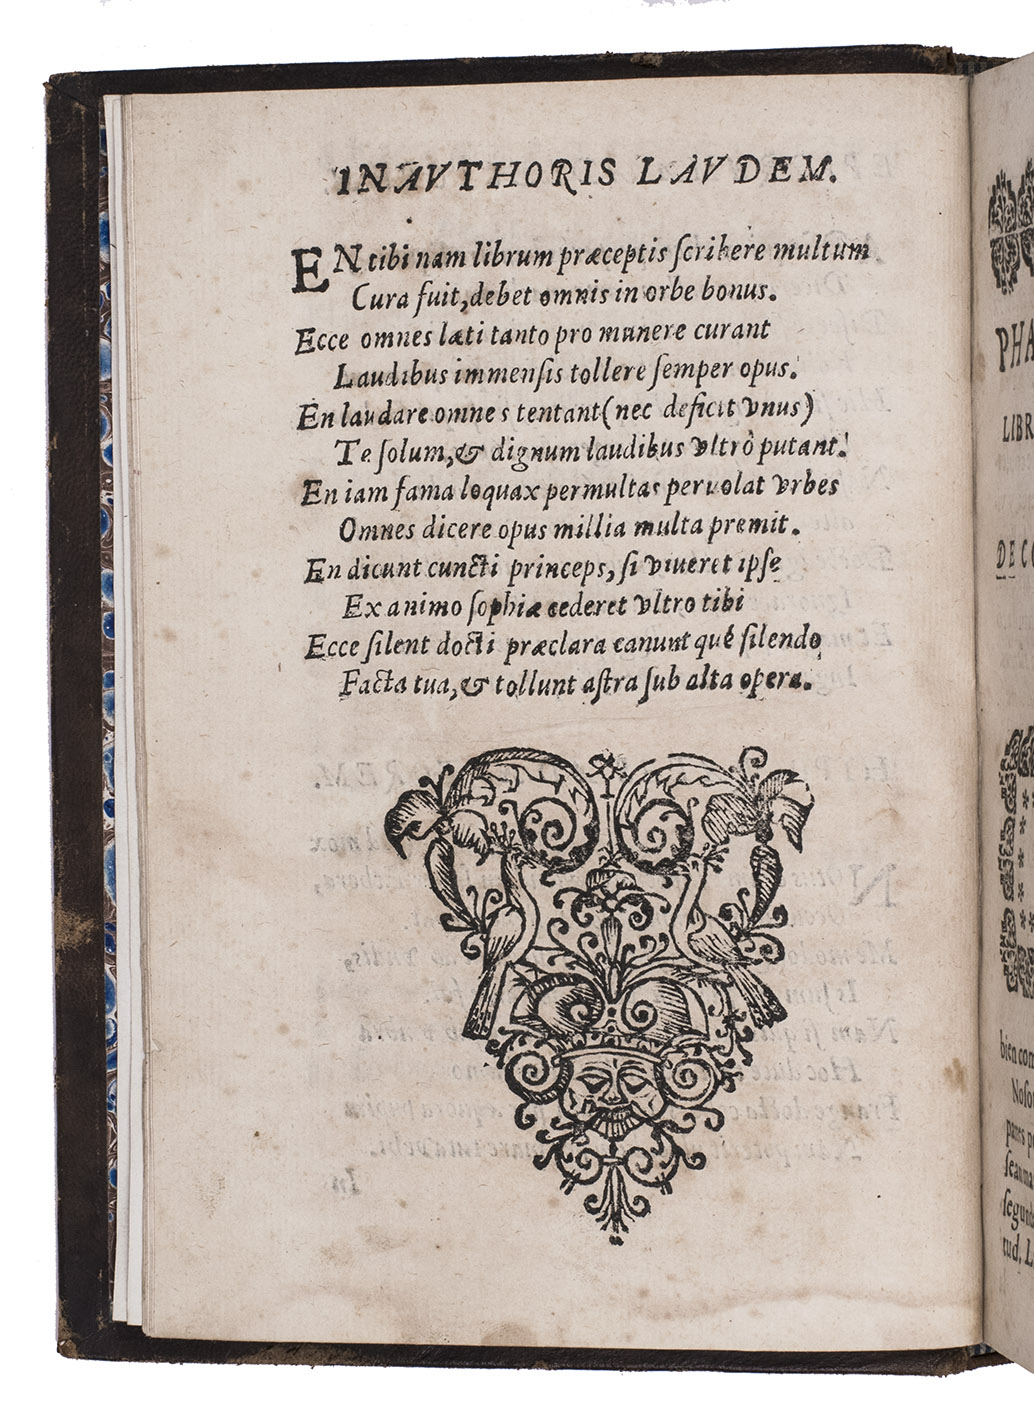 IN AVTHORIS LAVDEM.
EN tibi nam librum præceptis ſcribere multum
Cura fuit, debet omnis in orbe bonus.
Ecce omnes læti tanto pro munere curant
Laudibus immenſis tollere ſemper opus.
En laudare omnes tentant (nec deficit vnus)
Te ſolum, & dignum laudibus vltrò putant.
En iam fama loquax permultas peruolat vrbes
Omnes dicere opus millia multa premit.
En dicunt cuncti princeps, ſi viueret ipſe
Ex animo ſophiæ cederet vltro tibi
Ecce ſilent docti præclara canunt qué ſilendo
Facta tua, & tollunt aſtra ſub alta opera.
PHA
LIBR
DE CO
bien com
Noſo
pares p
ſeauma
ſegund
tud. L